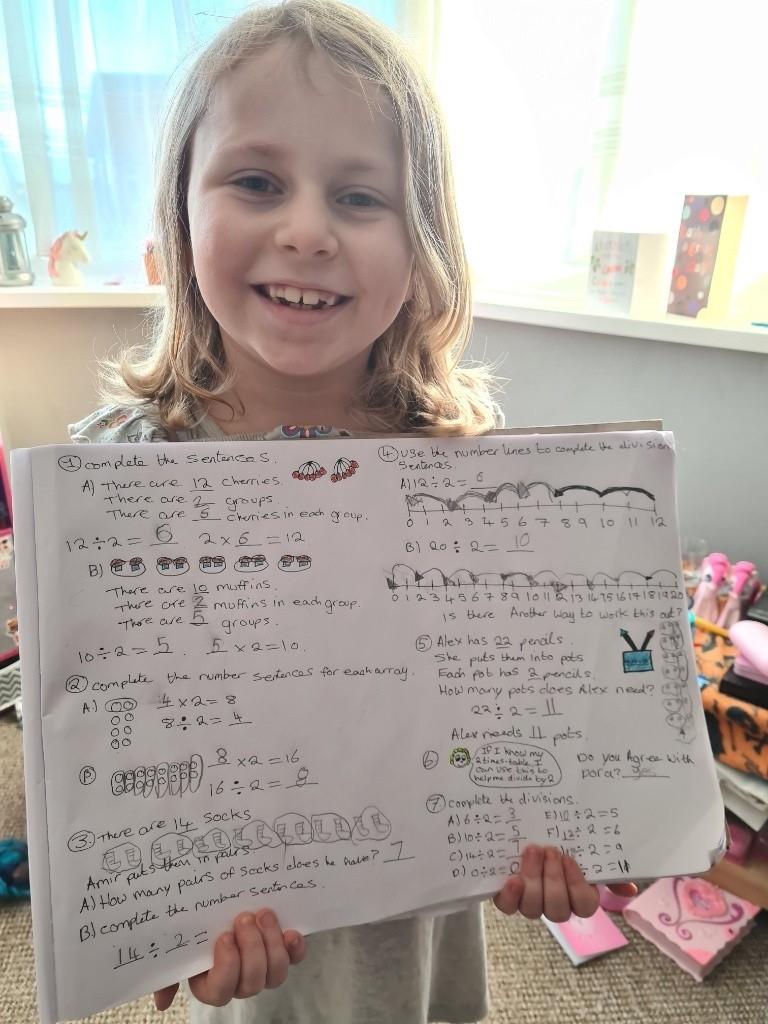 1 complete the sentences.
A) There are 12 cherries.
There are 2 groups.
There are 6 cherries in each group.
12÷2 = 6 2 x 6 = 12
B)
There are 10 muffins.
There are 2 muffins in each group.
There are 5 groups.
10÷2 = 5. 5 x 2 = 10.
2 complete the number sentences for each array.
A) 4 x 2 = 8
8÷2 = 4
B 8 x 2 = 16
16÷2 = 8
3. There are 14 socks
Amir puts them in pairs.
A) How many pairs of socks does he have? 7
B) complete the number sentences.
14 ÷ 2 =
4 use the number lines to complete the division
sentences.
A) 12÷2 = 6
0 1 2 3 4 5 6 7 8 9 10 11 12
B) 20÷2 = 10
0 1 2 3 4 5 6 7 8 9 10 11 12 13 14 15 16 17 18 19 20
is there Another way to work this out?
5 Alex has 22 pencils.
She puts them into pots
Each pot has 2 pencils.
How many pots does Alex need?
22÷2 = 11
Alex needs 11 pots.
6 If I know my
2 times-table I
can use this to
help me divide by 2
Do you Agree with
Dora? yes
7 complete the divisions.
A) 6÷2 = 3
B) 10÷2 = 5
C) 14÷2 =
D) 0÷2 = 0
E) 10÷2 = 5
F) 12÷2 = 6
÷2 = 9
÷2 = 11